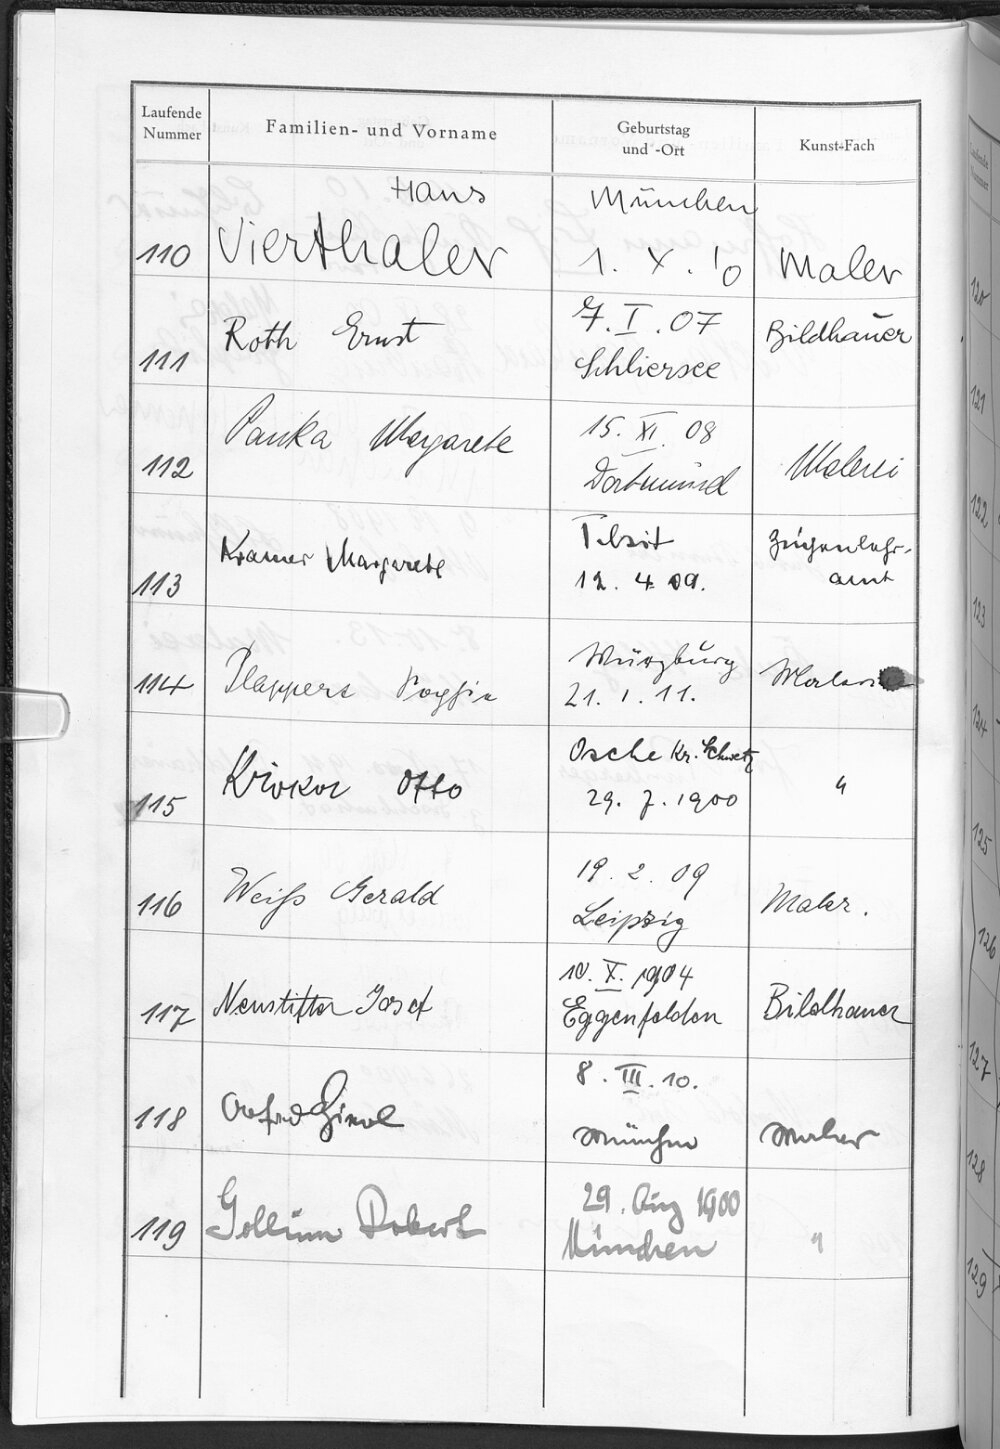 Laufende Nummer
Familien- und Vorname
Geburtstag und -Ort
Kunst-Fach
Hans
München
110 Vierthaler 1. X. 10 Maler
111 Roth Ernst 7. I. 07 Bildhauer
Schliersee
112 Panka Margarete 15. XI. 08 Malerei
Dortmund
113 Kramer Margarete Tilsit Zeichenlehr-
12. 4. 09. amt
114 Würzburg
21. 1. 11.
115 Otto Osche Kr. Schwetz "
29. 7. 1900
116 Weiß Gerald 19. 2. 09 Maler.
Leipzig
117 Neustifter Josef 10. X. 1904 Bildhauer
Eggenfelden
118 8. III. 10.
München Maler
119 Robert 29. Aug 1900 "
München
120
121
122
123
124
125
126
127
128
129